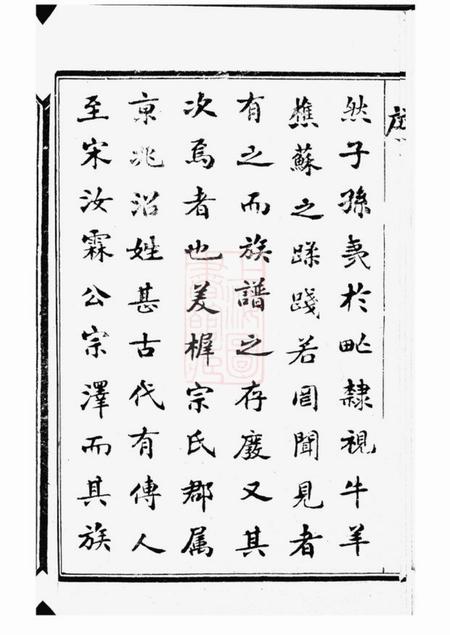 然子孫夷於甿隸視牛羊
樵蘇之蹂踐若罔聞見者
有之而族譜之存廢又其
次焉者也芙樨宗氏郡属
京兆沿姓甚古代有傳人
至宋汝霖公宗澤而其族